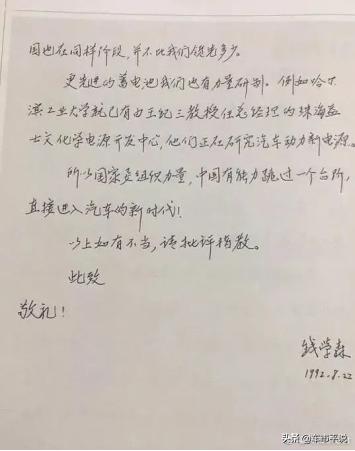 国也在同样阶段,并不比我们领先多少。
更先进的蓄电池我们也有力量研制。例如哈尔
滨工业大学就已有由王纪三教授任总经理的珠海益
士文化学电源开发中心,他们正在研究汽车动力新电源。
所以国家要组织力量,中国有能力跳过一个台阶,
直接进入汽车的新时代!
以上如有不当,请批评指教。
此致
敬礼!
钱学森
1992.8.22
头条@车市平说